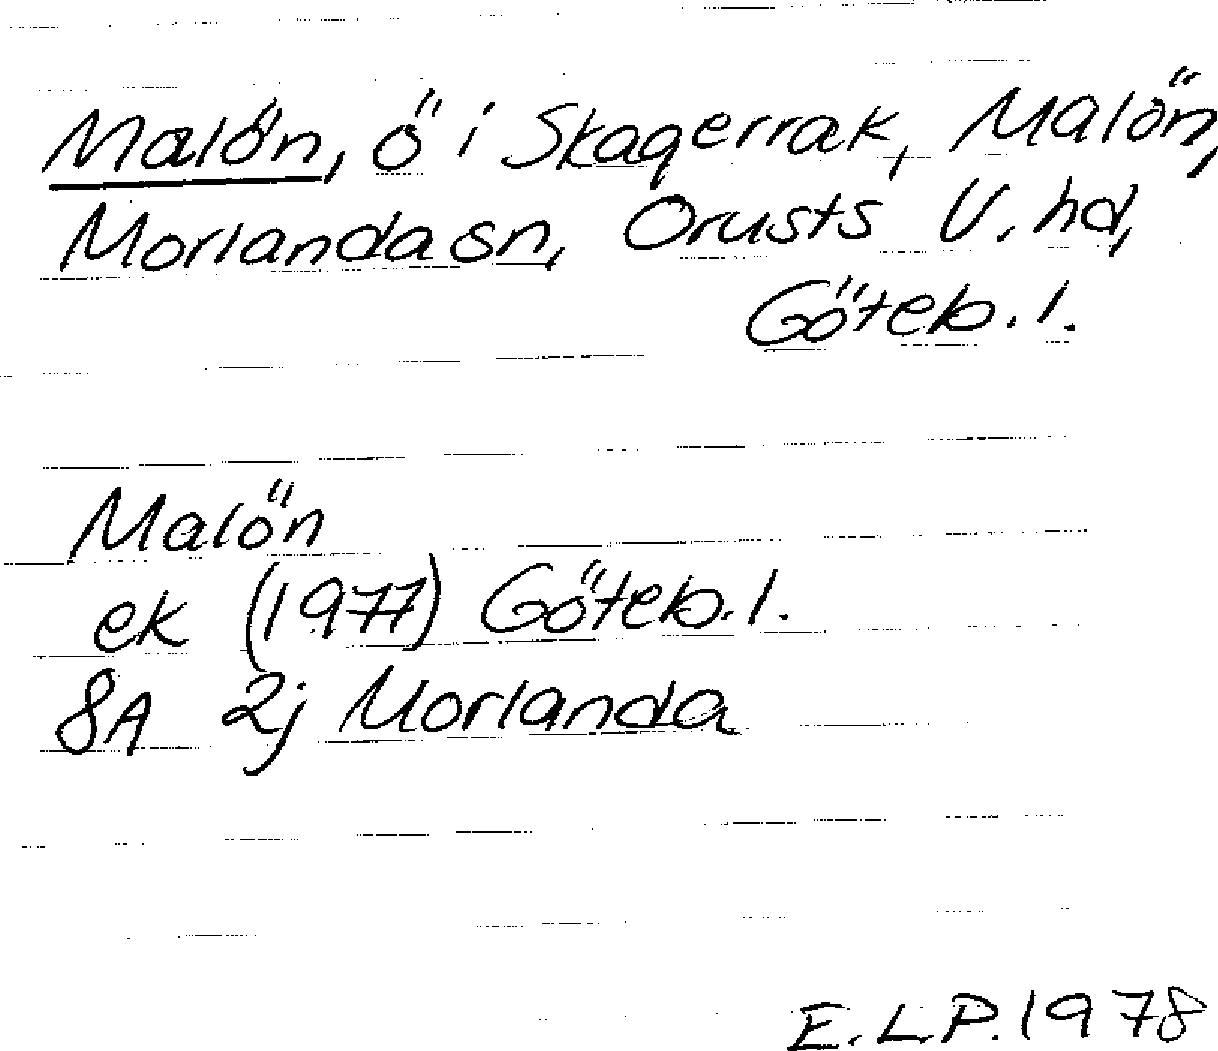 Malön, ö i Skagerrak, Malön,
Morlanda sn, Orusts V. hd,
Göteb. l.
Malön
ek (1977) Göteb. l.
8A 2j Morlanda
E.L.P. 1978